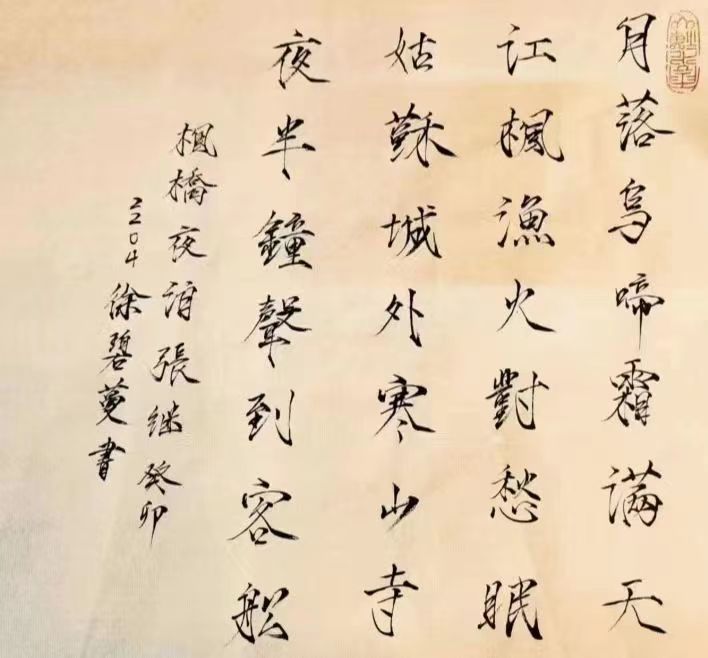 月落烏啼霜滿天
江楓漁火對愁眠
姑蘇城外寒山寺
夜半鐘聲到客船
楓橋夜泊張继癸卯
2204徐碧蔓書